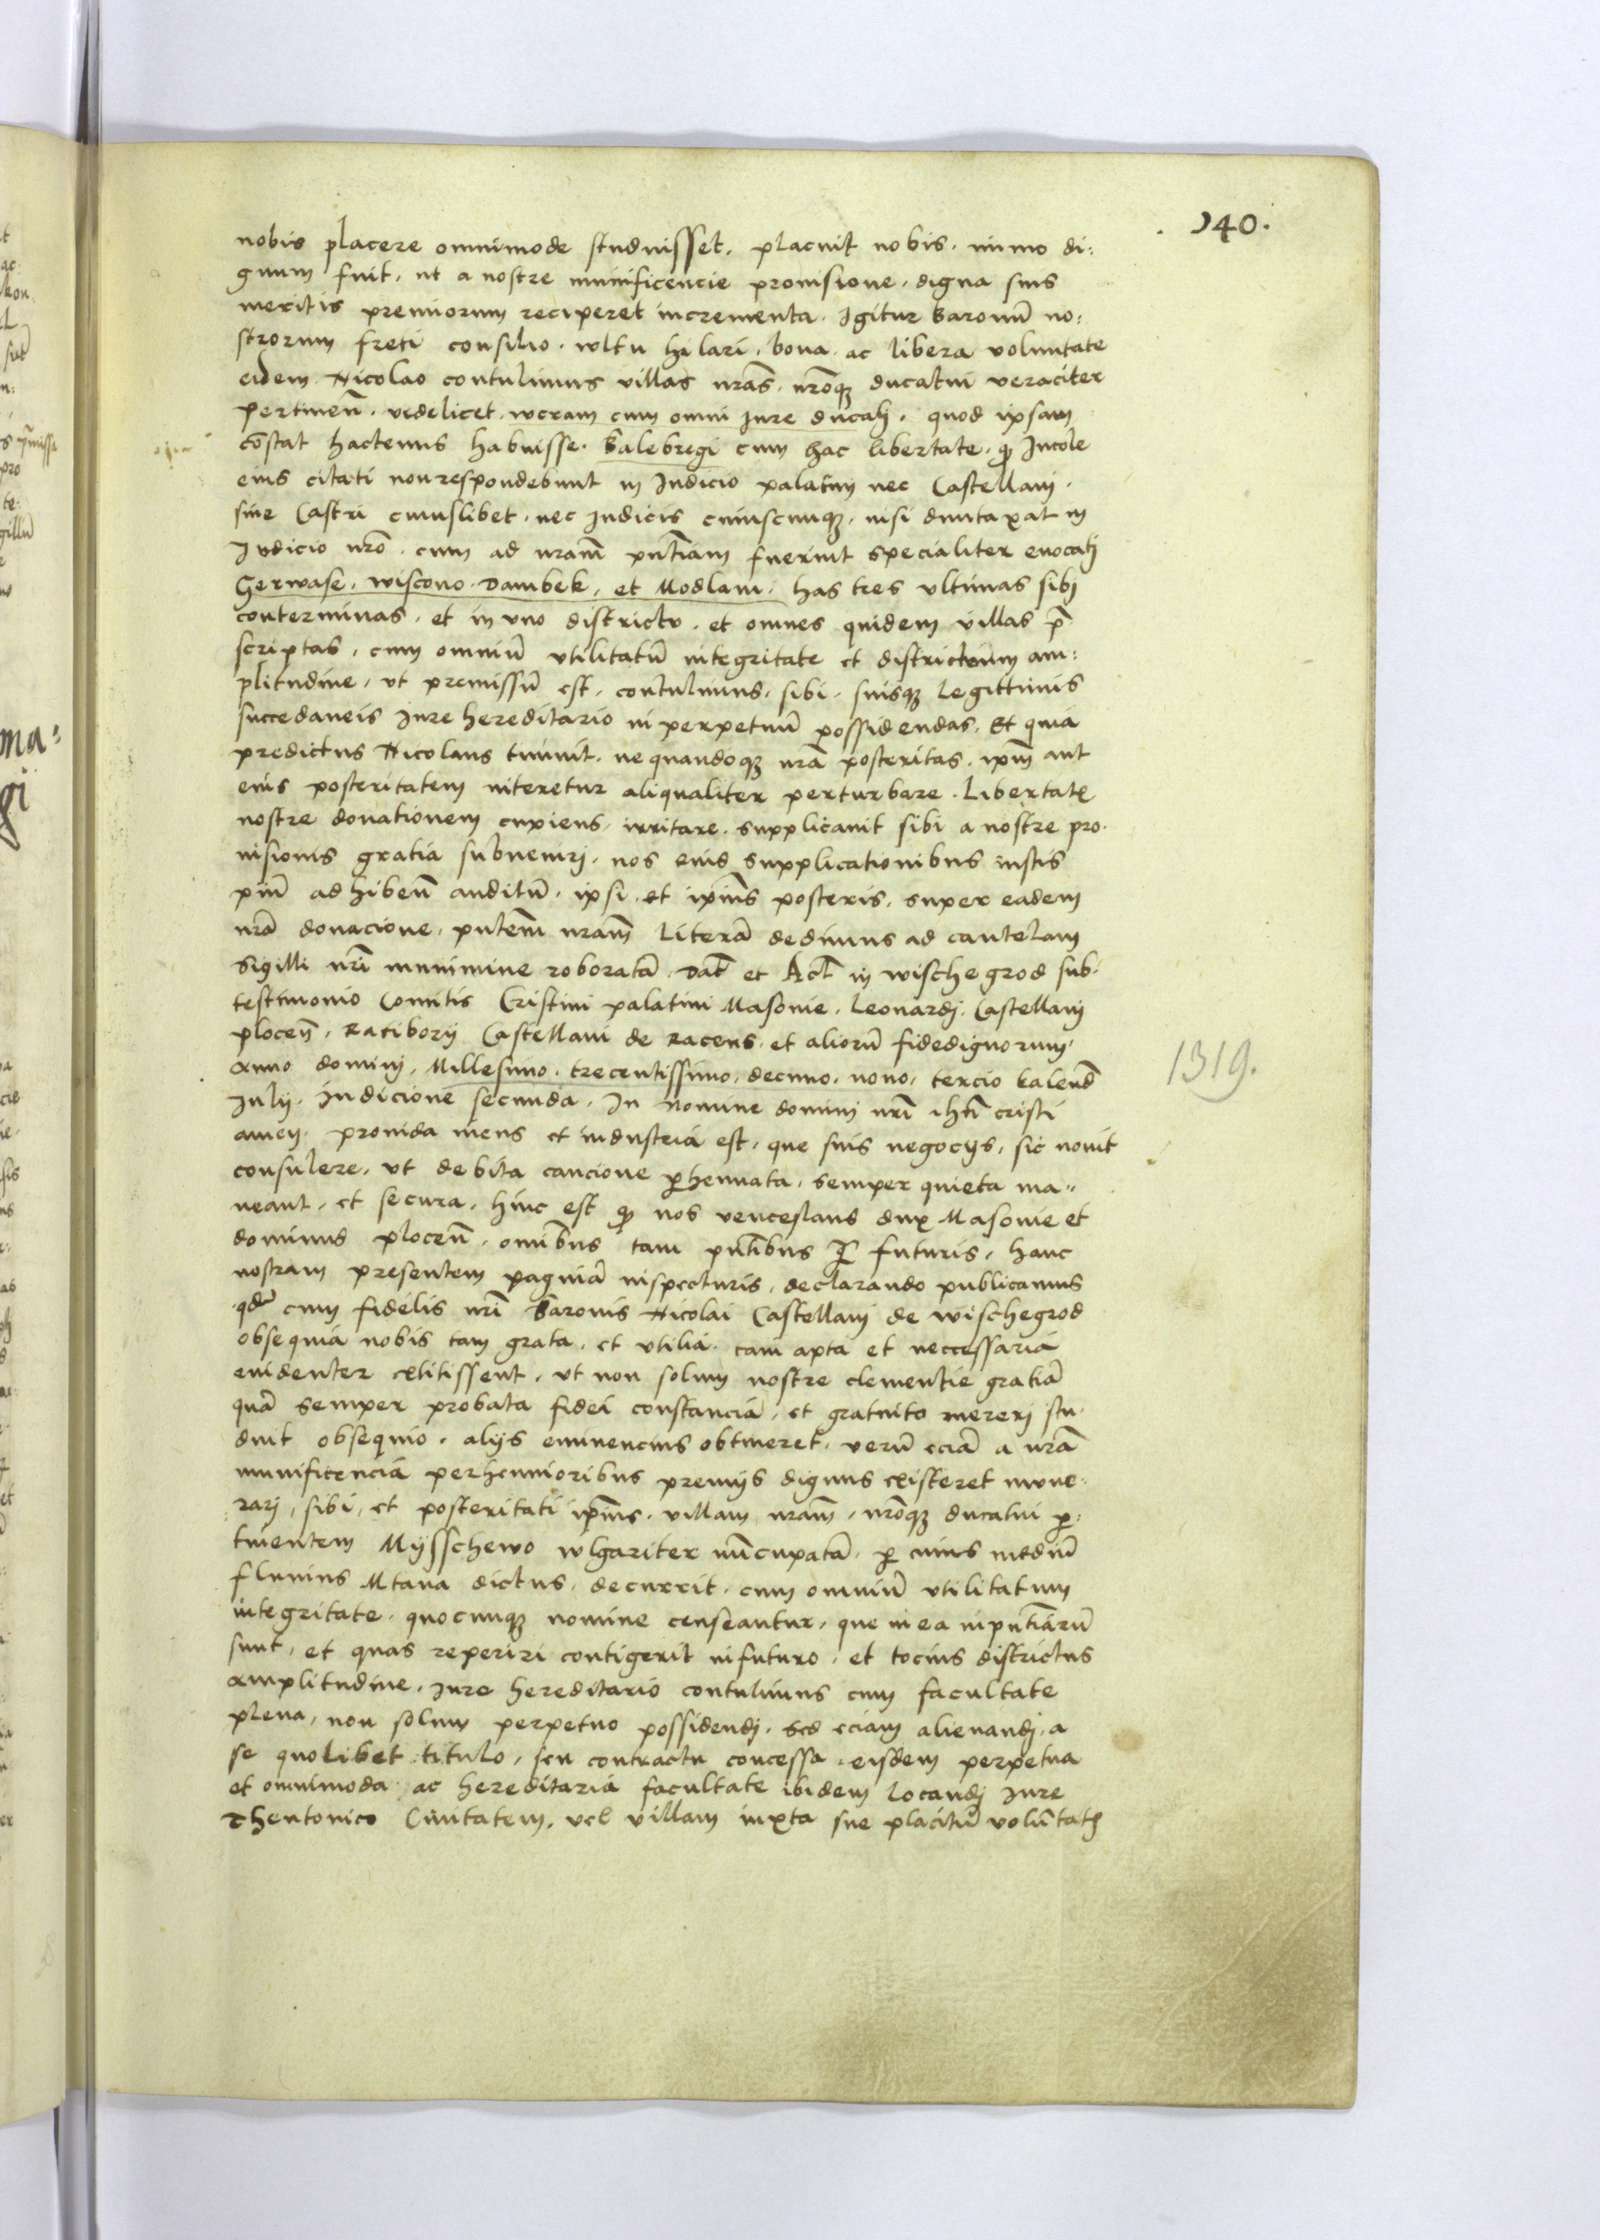 140.
nobis placere omnimode studuisset, placuit nobis. immo di:
gnum fuit, ut a nostre munificencie provisione, digna suis
meritis premiorum reciperet incrementa. Igitur Baronū no:
strorum freti consilio. wltu hilari, bona ac libera voluntate
eidem Nicolao contulimus villas nrās, nrōqȝ ducatui veraciter
pertineñ. videlicet. wcram cum omni Jure ducalj. quod ipsam
cōstat hactenus habuisse. Balebregi cum hac libertate. qp Incole
eius citati non respondebunt in Judicio palatini nec Castellani.
sive Castri cuiuslibet, nec Judicis cuiuscunqȝ, nisi dumtaxat in
Judicio nrō. cum ad nram̄ pntiam̄ fuerint specialiter evocatj
Gerwase. wiscono. Dambek, et Modlam. has tres ultimas sibj
conterminas, et in uno districtu. et omnes quidem villas p̄
scriptas, cum omniū utilitatū integritate et districtuum am:
plitudine, ut premissū est, contulimus, sibi, suisqȝ legittimis
succedaneis Jure hereditario in perpetuū possidendas. Et quia
predictus Nicolaus timuit. ne quandoqȝ nrā posteritas. ipm̄ aut
eius posteritatem niteretur aliqualiter perturbare. Libertatꝭ
nostre donationem cupiens, irritare. supplicavit sibi a nostre pro-
visionis gratia subvenirj. nos eius supplicationibus iustis
piū adhibeñ auditū. ipsi et ipius̄ posteris. super eadem
nrā donacione, pntem̄ nram̄ Literā dedimus ad cautelam
Sigilli nrī munimine roboratā. Dat̄ et Act̄ in wischegrod sub-
testimonio Comitis Cristini palatini Masovie. Leonardj. Castellanj
ploceñ. Ratiborij Castellani de Racens. et aliorū fidedignorum.
anno dominj. Millesimo. trecentissimo, decimo. nono, tercio kalend̄
Julij. Indicione secunda. In Nomine dominj nrī ihū cristi
1319.
amen. provida mens et industria est, que suis negocijs, sic novit
consulere, ut debita caucione phennata, semper quieta ma-
neant, et secura, hinc est qp nos venceslaus dux Masovie et
dominus ploceñ. omībus tam pntībus q̄ futuris, hanc
nostram presentem paginā inspecturis, declarando publicamus
qd cum fidelis nrī Baronis Nicolai Castellanj de wischegrod
obsequia nobis tam grata, et utilia. tam apta et neccessaria
evidenter extitissent, ut non solum nostre clementie gratiā
quā semper probata fidei constancia, et gratuito mererj stu-
duit obsequio. alijs eminencius obtineret, verū eciā a nrā
munificencia perhennioribus premijs dignus existeret mune-
rarj, sibi, et posteritati ipius̄. villam nram̄, nrōqȝ ducatui p-
tinentem Mijsschewo wlgariter nūcupatā. p cuius mediū
fluvius Mtava dictus, decurrit. cum omniū utilitatum
integritate. quocunqȝ nomine censeantur, que in ea inpntiarū
sunt, et quas reperiri contigerit infuturo, et tocius districtus
amplitudine, Jure hereditario contulimus cum facultate
plena, non solum perpetuo possidendj. sed eciam alienandj. a
se quolibet titulo, seu contractu concessa eisdem perpetua
et omnimoda ac hereditaria facultate ibidem locandj Jure
Theutonico Civitatem, vel villam iuxta sue placitū volūtatꝭ